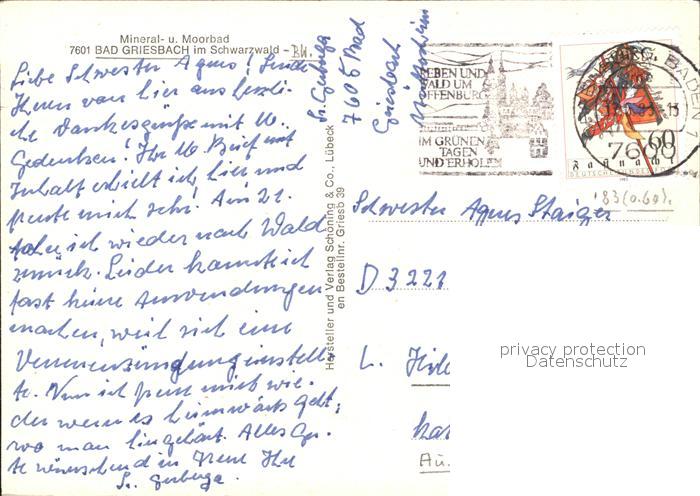 Mineral- u. Moorbad
7601 BAD GRIESBACH im Schwarzwald - BW.
Liebe Schwester Agnes! Sende
Ihnen von hier aus herzli-
che Dankesgrüße mit
Gedenken! Ihr Brief mit
Inhalt erhielt ich hier und
freute mich sehr! Am 21.
fahre ich wieder nach Wald
zurück. Leider konnte ich
fast keine Anwendungen
machen, weil sich eine
Venenentzündung einstell-
te. Nun ich freue mich wie-
der wenn es heimwärts geht,
wo man hingehört. Alles Gu-
te wünschend in Treue Ihre
Sr. Gerberga
Sr. Gerberga
7605 Bad
Griesbach
Hersteller und Verlag Schöning & Co., Lübeck
en Bestellnr. Griesb 39
LEBEN UND
WALD UM
OFFENBURG
IM GRÜNEN
TAGEN
UND ERHOLEN
OFFENBURG, BADEN
7600
60
Fasnacht
DEUTSCHE BUNDESPOST
'83 (0.60).
Schwester Agnes Staiger
D 3221
L.
Au.
privacy protection
Datenschutz